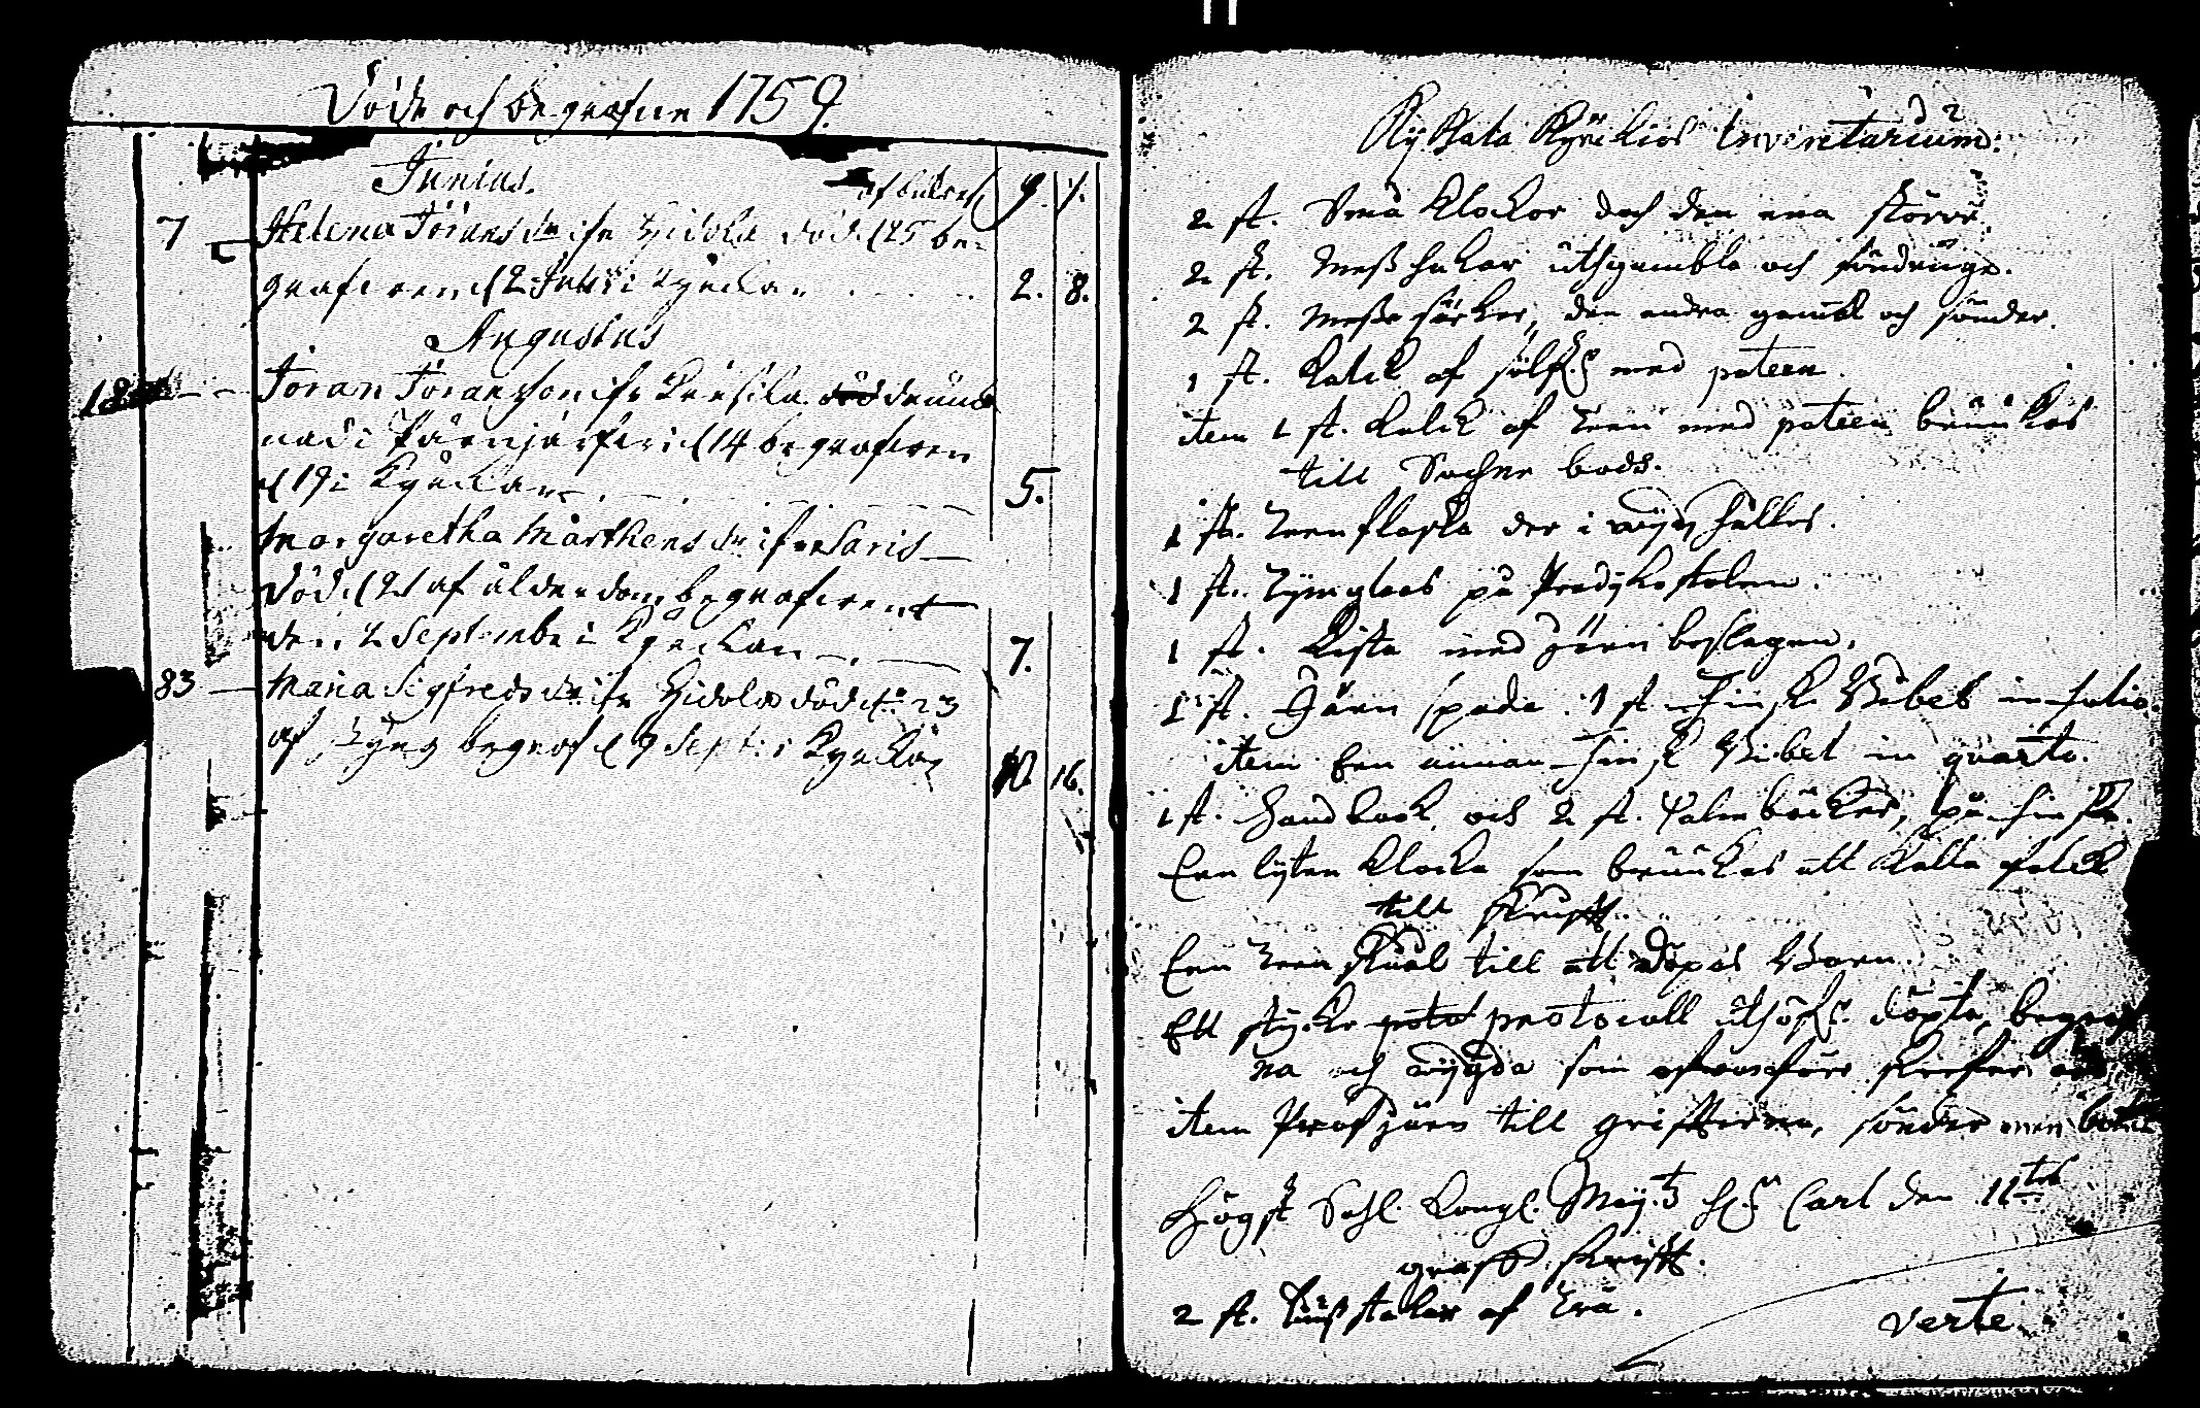 Döde och begrafne 1759.
Junius.
7 Helena Jörans dr ifr Hidola död d 25 be-
grafven d 2 Julii i Kyrckan 2. 8.
Augustus
Jöran Jöransson ifr drunck
nad i d 14 begrafven
d 19 i Kyrckan 5.
Margaretha Mårthens dr ifr Saris
död d 21 af ålderdom begrafven
den 2 Septembr i Kyrckan 7.
83 Maria Sigfreds dr ifr Hidola död d 23
af begrof d 9 Sept: i Kyrckan 16.
Kyrckios Inventarium:
2 st. Små Klockor doch den ena större.
2 st. Messhakar uthgambla och söndrige.
2 st. Messe särker, den andra gaml och sönder.
1 st. Kalck af sölf med pateen.
item 1 st. Kalck af Teen med pateen brukas
till Sochne bods.
1 st. Teenflaska der i wijn hålles.
1 st. Tijmglas på Predijkostolen.
1 st. Kista med Järn beslagen.
1 st. Järn spada. 1 st. Finsk Bibel in folio.
item Een annan Finsk Bibel in quarto.
1 st. Handbook och 2 st. Psalmböcker, på Finska.
Een lijten Klocka som brukas att Kalla folck
till Skrifft.
Een Teen Skåål till att döpas Barn.
Ett stycke protocoll uthöfr. döpta, begraf
na och wijgda som
item till griffterna, sönder men
Högst Sahl. Kongl. Maij:tz Carl den 11tes
graff Skrifft.
2 st. Liusstakar af Trä.
verte